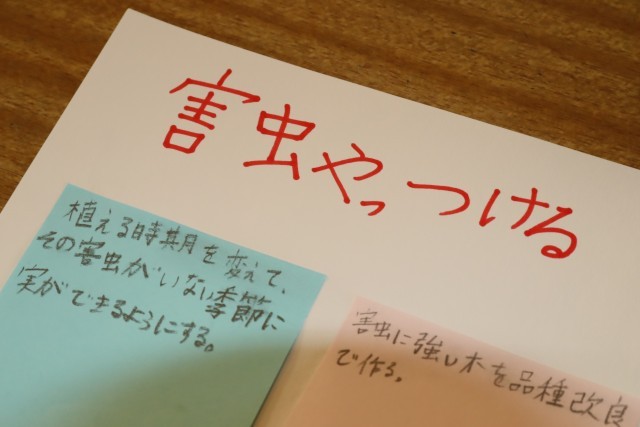 害虫やっつける
植える時期を変えて、
その害虫がいない季節に
実ができるようにする。
害虫に強い木を品種改良
で作る。